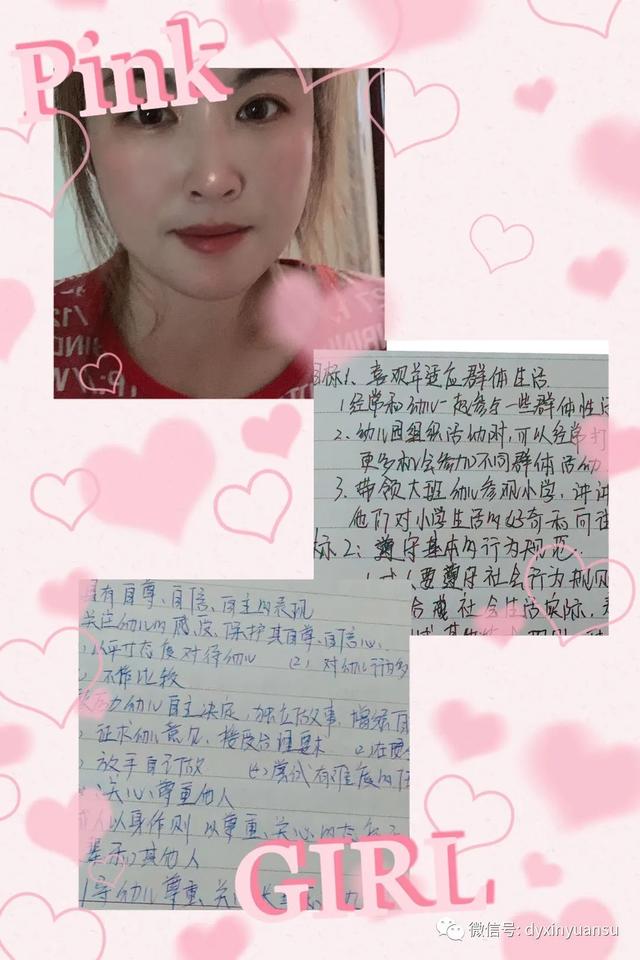 Pink
目标1、喜欢并适应群体生活.
1.经常和幼儿一起参与一些群体性活
2.幼儿园组织活动时,可以经常打
更多机会参加不同群体活动
3.带领大班幼儿参观小学,讲
他们对小学生活的好奇和向往
标2:遵守基本的行为规范.
要遵守社会行为规
合 社会生活实际,
具有自尊、自信、自主的表现
关注幼儿的感受,保护其自尊、自信心.
以平等态度对待幼儿 (2)对幼儿行为多
不能比较
鼓励幼儿自主决定,独立做事,增强自
征求幼儿意见,接受合理要求
放手自己做 尝试有难度的任
关心、尊重他人
成人以身作则 以尊重、关心的态度
其他人
引导幼儿尊重、关
GIRL
微信号: dyxinyuansu